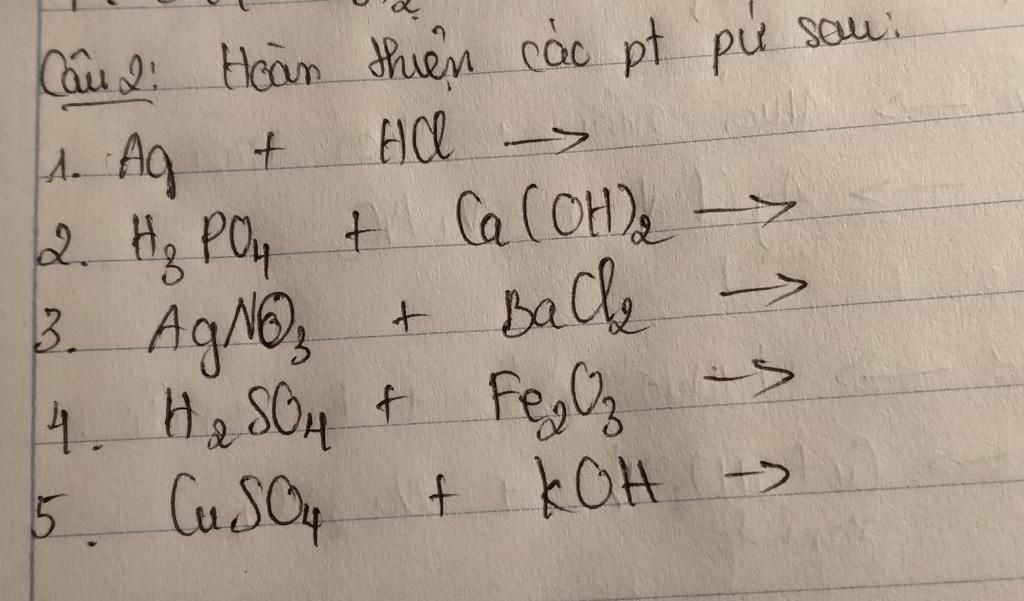 Câu 2: Hoàn thiện các pt pứ sau:
1. Ag + HCl →
2. H₃PO₄ + Ca(OH)₂ →
3. AgNO₃ + BaCl₂ →
4. H₂SO₄ + Fe₂O₃ →
5. CuSO₄ + KOH →